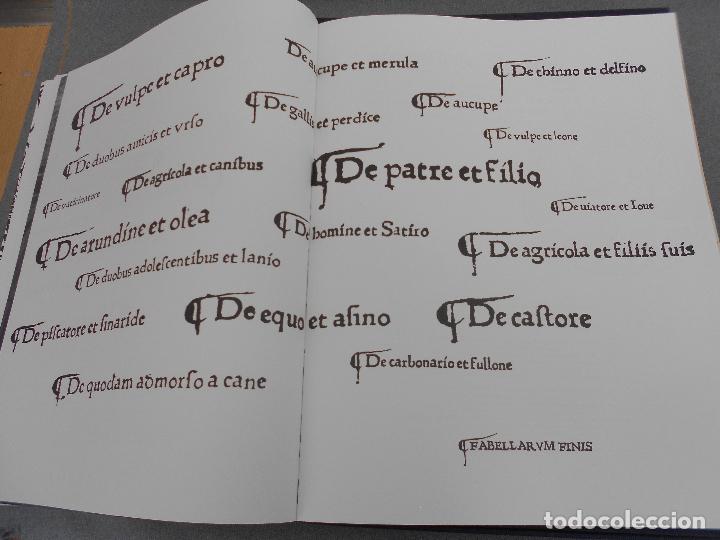 ¶ De vulpe et capro
¶ De aucupe et merula
¶ De thinno et delfino
¶ De gallis et perdice
¶ De aucupe
¶ De vulpe et leone
¶ De duobus amicis et vrso
¶ De agricola et canibus
¶ De patre et filio
¶ De vaticinatore
¶ De uiatore et Ioue
¶ De arundine et olea
¶ De homine et Satiro
¶ De agricola et filiis suis
¶ De duobus adolescentibus et lanio
¶ De equo et asino
¶ De castore
¶ De piscatore et smaride
¶ De carbonario et fullone
¶ De quodam admorso a cane
¶ FABELLARVM FINIS
todocoleccion.net